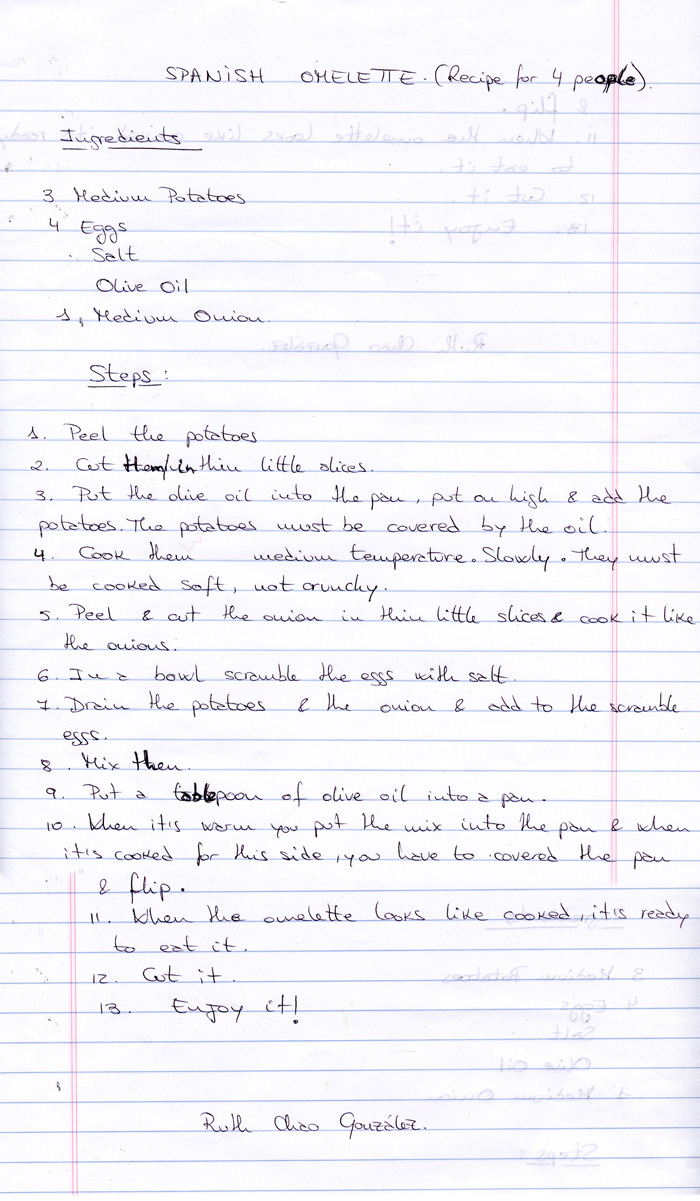 SPANISH OMELETTE. (Recipe for 4 people).
Ingredients
3 Medium Potatoes
4 Eggs
Salt
Olive Oil
1, Medium Onion.
Steps:
1. Peel the potatoes
2. Cut them in thin little slices.
3. Put the olive oil into the pan, put on high & add the
potatoes. The potatoes must be covered by the oil.
4. Cook them medium temperature. Slowly. They must
be cooked soft, not crunchy.
5. Peel & cut the onion in thin little slices & cook it like
the onions.
6. In a bowl scramble the eggs with salt.
7. Drain the potatoes & the onion & add to the scramble
eggs.
8. Mix then.
9. Put a tablepoon of olive oil into a pan.
10. When it's warm you put the mix into the pan & when
it's cooked for this side, you have to covered the pan
& flip.
11. When the omelette looks like cooked, it's ready
to eat it.
12. Cut it.
13. Enjoy it!
Ruth Chao González.